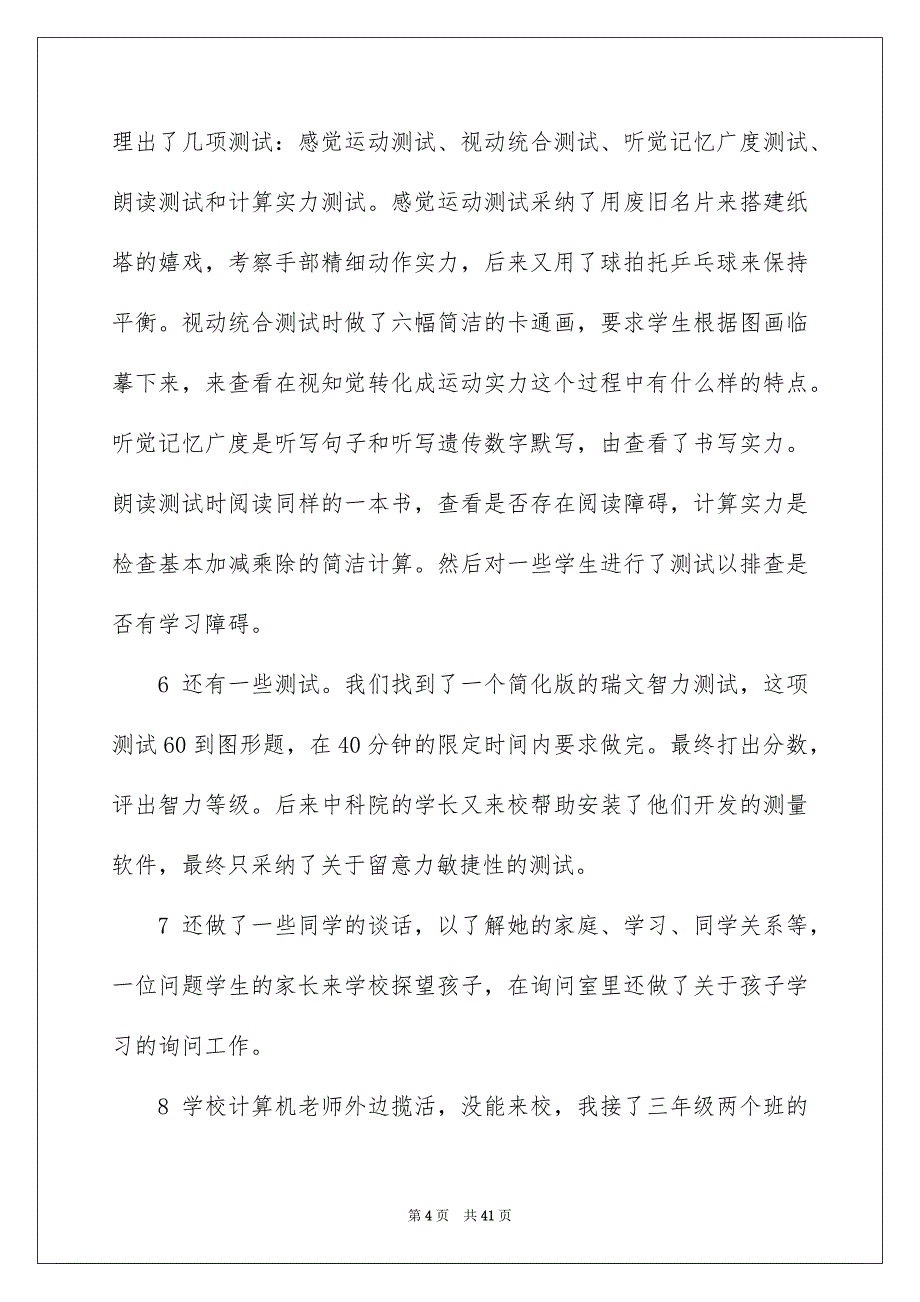 理出了几项测试：感觉运动测试、视动统合测试、听觉记忆广度测试、
朗读测试和计算实力测试。感觉运动测试采纳了用废旧名片来搭建纸
塔的嬉戏，考察手部精细动作实力，后来又用了球拍托乒乓球来保持
平衡。视动统合测试时做了六幅简洁的卡通画，要求学生根据图画临
摹下来，来查看在视知觉转化成运动实力这个过程中有什么样的特点。
听觉记忆广度是听写句子和听写遗传数字默写，由查看了书写实力。
朗读测试时阅读同样的一本书，查看是否存在阅读障碍，计算实力是
检查基本加减乘除的简洁计算。然后对一些学生进行了测试以排查是
否有学习障碍。
6 还有一些测试。我们找到了一个简化版的瑞文智力测试，这项
测试 60 到图形题，在 40 分钟的限定时间内要求做完。最终打出分数，
评出智力等级。后来中科院的学长又来校帮助安装了他们开发的测量
软件，最终只采纳了关于留意力敏捷性的测试。
7 还做了一些同学的谈话，以了解她的家庭、学习、同学关系等，
一位问题学生的家长来学校探望孩子，在询问室里还做了关于孩子学
习的询问工作。
8 学校计算机老师外边揽活，没能来校，我接了三年级两个班的
第 4 页 共 41 页